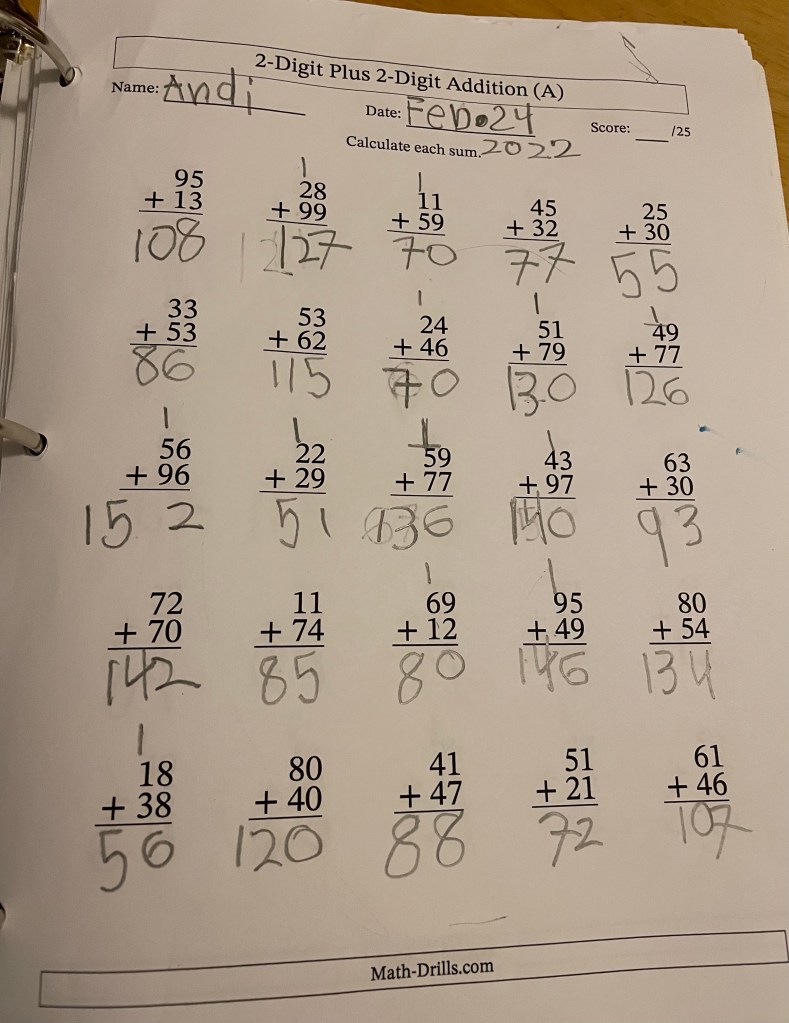 2-Digit Plus 2-Digit Addition (A)
Name: Andi Date: Feb.24 Score: /25
Calculate each sum. 2022
1 1
95 28 11 45 25
+ 13 + 99 + 59 + 32 + 30
108 127 70 77 55
1 1 1
33 53 24 51 49
+ 53 + 62 + 46 + 79 + 77
86 115 70 130 126
1 1 1 1
56 22 59 43 63
+ 96 + 29 + 77 + 97 + 30
152 51 136 140 93
1 1
72 11 69 95 80
+ 70 + 74 + 12 + 49 + 54
142 85 80 146 134
1
18 80 41 51 61
+ 38 + 40 + 47 + 21 + 46
56 120 88 72 107
Math-Drills.com